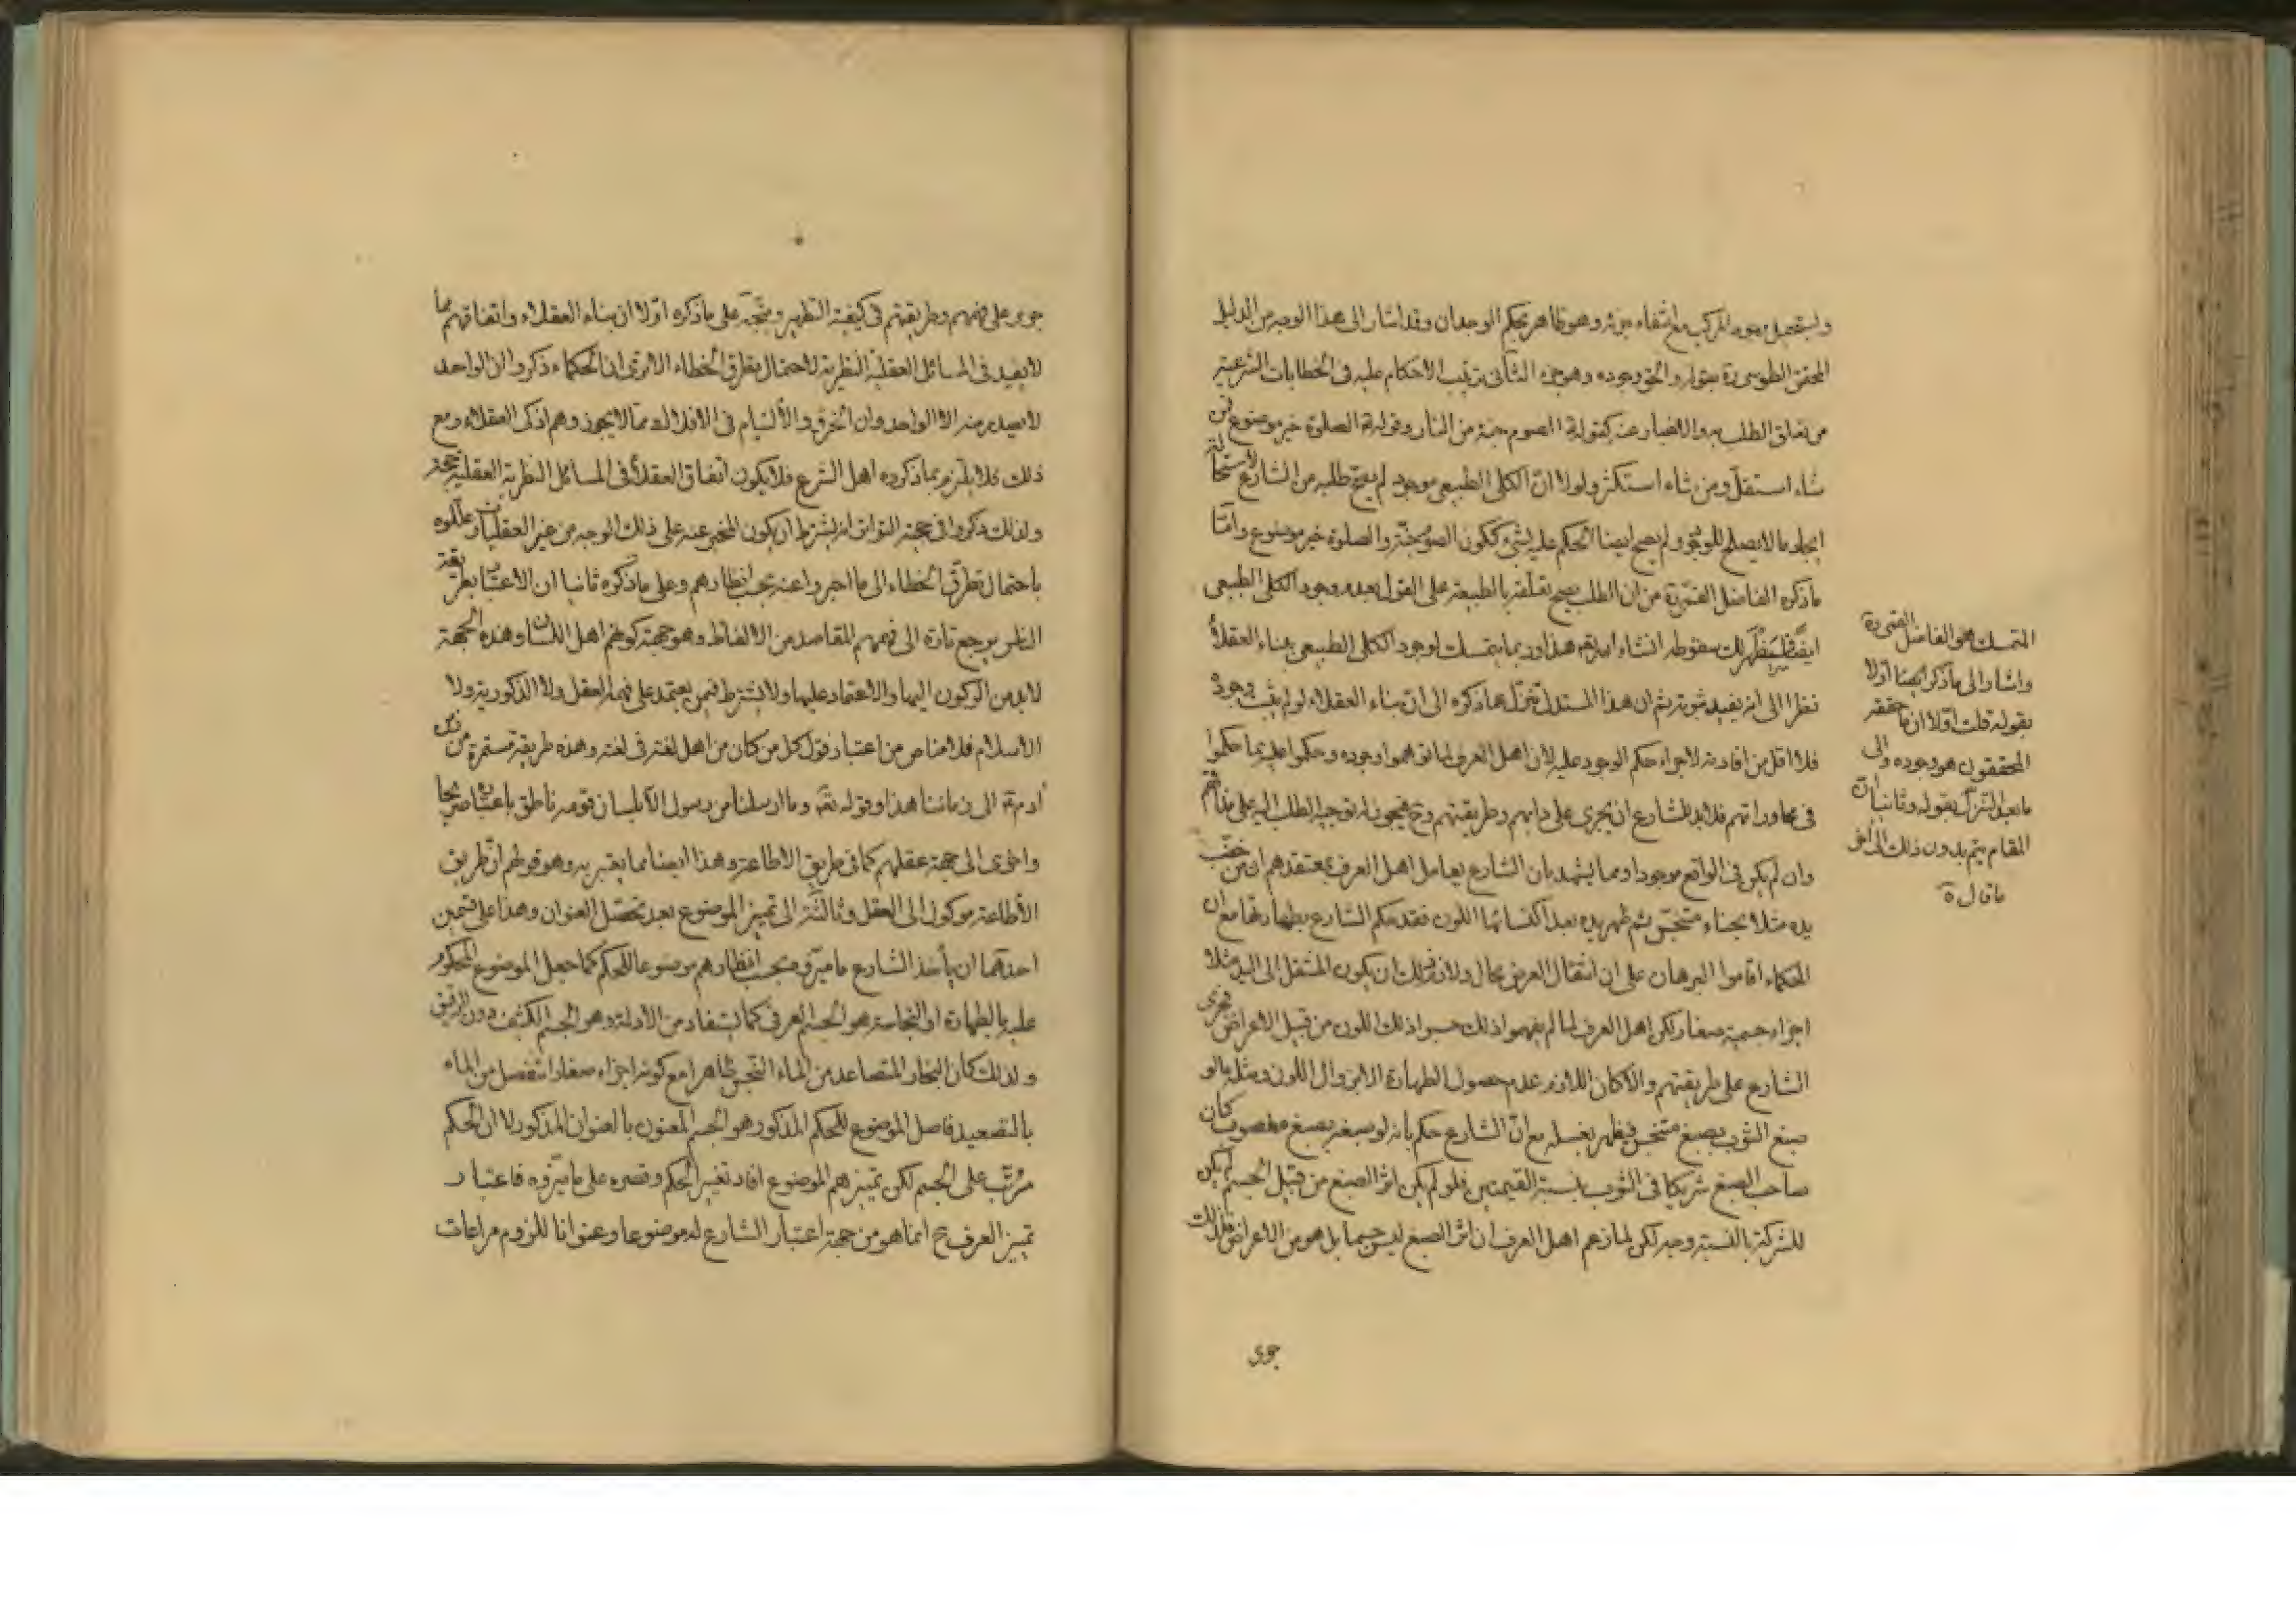 ويستحيل وجود المركب مع انتفاء جزئه وهو ظاهر بحكم الوجدان وقد اشار الى هذا الوجه من الدليل
المحقق الطوسي رة بقوله والحق وجوده وهو جزء الثاني ترتب الاحكام عليه في الخطابات الشرعية
من تعلق الطلب به والاخبار عنه كقوله الصوم جنة من النار وقوله الصلوة خير موضوع فمن
شاء استقل ومن شاء استكثر ولولا ان الكلي الطبيعي موجود لم يصح طلبه من الشارع لاستحالة
ايجاد ما لا يصلح للوجود ولم يصح ايضا الحكم عليه بشيء ككون الصوم جنة والصلوة خير موضوع واما
ما ذكره الفاضل القمي رة من ان الطلب يصح تعلقه بالطبيعة على القول بعدم وجود الكلي الطبيعي
ايضا فسيظهر لك سقوطه انشاء الله تعالى هذا وربما يتمسك لوجود الكلي الطبيعي ببناء العقلاء
نظرا الى انه يفيد ثبوته ثم ان هذا المستدل تنزل عما ذكره الى ان بناء العقلاء لو لم يثبت وجوده
فلا اقل من افادته لاجراء حكم الوجود عليه لان اهل العرف لما توهموا وجوده وحكموا عليه بما حكموا
في محاوراتهم فلابد للشارع ان يجري على دابهم وطريقتهم وح فيجوز له توجيه الطلب اليه على مذاقهم
وان لم يكن في الواقع موجودا ومما يشهد بان الشارع يعامل اهل العرف بمعتقدهم ان من خضب
يده مثلا بحناء متنجس ثم طهر يده بعد اكتسائها اللون فقد حكم الشارع بطهارتها مع ان
الحكماء اقاموا البرهان على ان انتقال العرض محال ولازم ذلك ان يكون المنتقل الى اليد مثلا
اجزاء جسمية صغار ولكن اهل العرف لما لم يفهموا ذلك حسبوا ذلك اللون من قبيل الاعراض فجرى
الشارع على طريقتهم والا كان اللازم عدم حصول الطهارة الا بزوال اللون ومثله ما لو
صبغ الثوب بصبغ متنجس فيطهر بغسله مع ان الشارع حكم بانه لو صبغه بصبغ مغصوب كان
صاحب الصبغ شريكا في الثوب بنسبة القيمتين فلو لم يكن اثر الصبغ من قبيل الجسم لم يكن
للشركة بالنسبة وجه لكن لما زعم اهل العرف ان اثر الصبغ ليس جسما بل هو من الاعراض فلذلك
جرى
المتمسك هو الفاضل القمي رة
واشار الى ما ذكر هيهنا اولا
بقوله قلت اولا ان ما حققه
المحققون هو وجوده والى
ما بعد التنزل بقوله وثانيا ان
المقام يتم بدون ذلك الى اخر
ما قال رة
جرى على فهمهم وطريقتهم في كيفية التطهير ويتجه على ما ذكره اولا ان بناء العقلاء واتفاقهم مما
لا يفيد في المسائل العقلية النظرية لاحتمال تطرق الخطاء الا ترى ان الحكماء ذكروا ان الواحد
لا يصدر منه الا الواحد وان الخرق والالتيام في الافلاك مما لا يجوز وهم اذكى العقلاء ومع
ذلك فلا يلتزم بما ذكروه اهل الشرع فلا يكون اتفاق العقلاء في المسائل النظرية العقلية حجة
ولذلك ذكروا في حجية التواتر انه يشترط ان يكون المخبر عنه على ذلك الوجه من غير العقليات وعللوه
باحتمال تطرق الخطاء الى ما اخبروا عنه بحسب انظارهم وعلى ما ذكره ثانيا ان الاعتبار بطريقة
النظر يرجع تارة الى فهمهم المقاصد من الالفاظ وهو جهة كونهم اهل اللسان وهذه الجهة
لابد من الركون اليها والاعتماد عليها ولا يشترط فيمن يعتمد على فهمه العقل ولا الذكورية ولا
الاسلام فلا مناص من اعتبار قول كل من كان من اهل لغته في لغته وهذه طريقة مستمرة من زمن
ادم الى زماننا هذا وقوله تعالى وما ارسلنا من رسول الا بلسان قومه ناطق باعتبارها صريحا
واخرى الى جهة عقلهم كما في طريق الاطاعة وهذا ايضا مما يعتبر به وهو قولهم ان طريق
الاطاعة موكول الى العقل وثالثة الى تمييز الموضوع بعد تحصل العنوان وهذا على قسمين
احدهما ان يأخذ الشارع ما ميزوه بحسب انظارهم موضوعا للحكم كما جعل الموضوع المحكوم
عليه بالطهارة او النجاسة هو الجسم العرفي كما يستفاد من الادلة وهو الجسم الكثيف دون الرقيق
ولذلك كان البخار المتصاعد من الماء النجس طاهرا مع كونه اجزاء صغارا تنفصل من الماء
بالتصعيد فاصل الموضوع للحكم المذكور هو الجسم المعنون بالعنوان المذكور لا ان الحكم
مرتب على الجسم لكن تمييزهم الموضوع افاد تغيير الحكم وقصره على ما ميزوه فاعتبار
تمييز العرف ح انما هو من جهة اعتبار الشارع له موضوعا وعنوانا للزوم مراعات